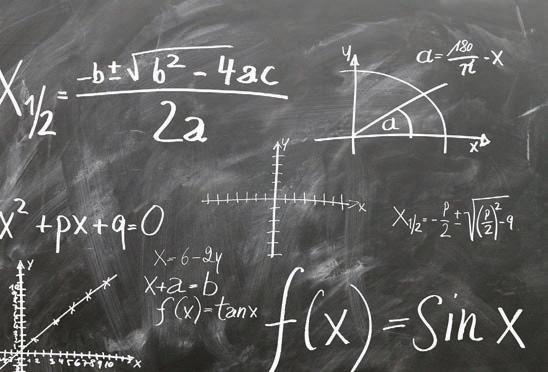 X1/2 = -b±√b²-4ac / 2a
y
a = 180/π · x
a
x
y
x
x² + px + q = 0
X1/2 = -p/2 ± √(p/2)² - q
x = 6 - 2y
x + a = b
f(x) = tan x
f(x) = Sin x
y
x